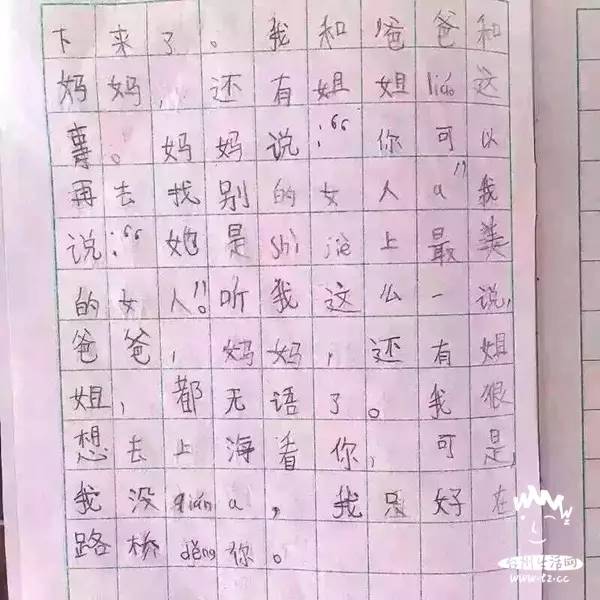 下来了。我和爸爸和
妈妈，还有姐姐liáo这
事。妈妈说：“你可以
再去找别的女人a”我
说：“她是shì jiè上最美
的女人”。听我这么一说，
爸爸，妈妈，还有姐
姐，都无语了。我狠
想去上海看你，可是
我没qián a，我只好在
路桥děng你。
www.tz.cc